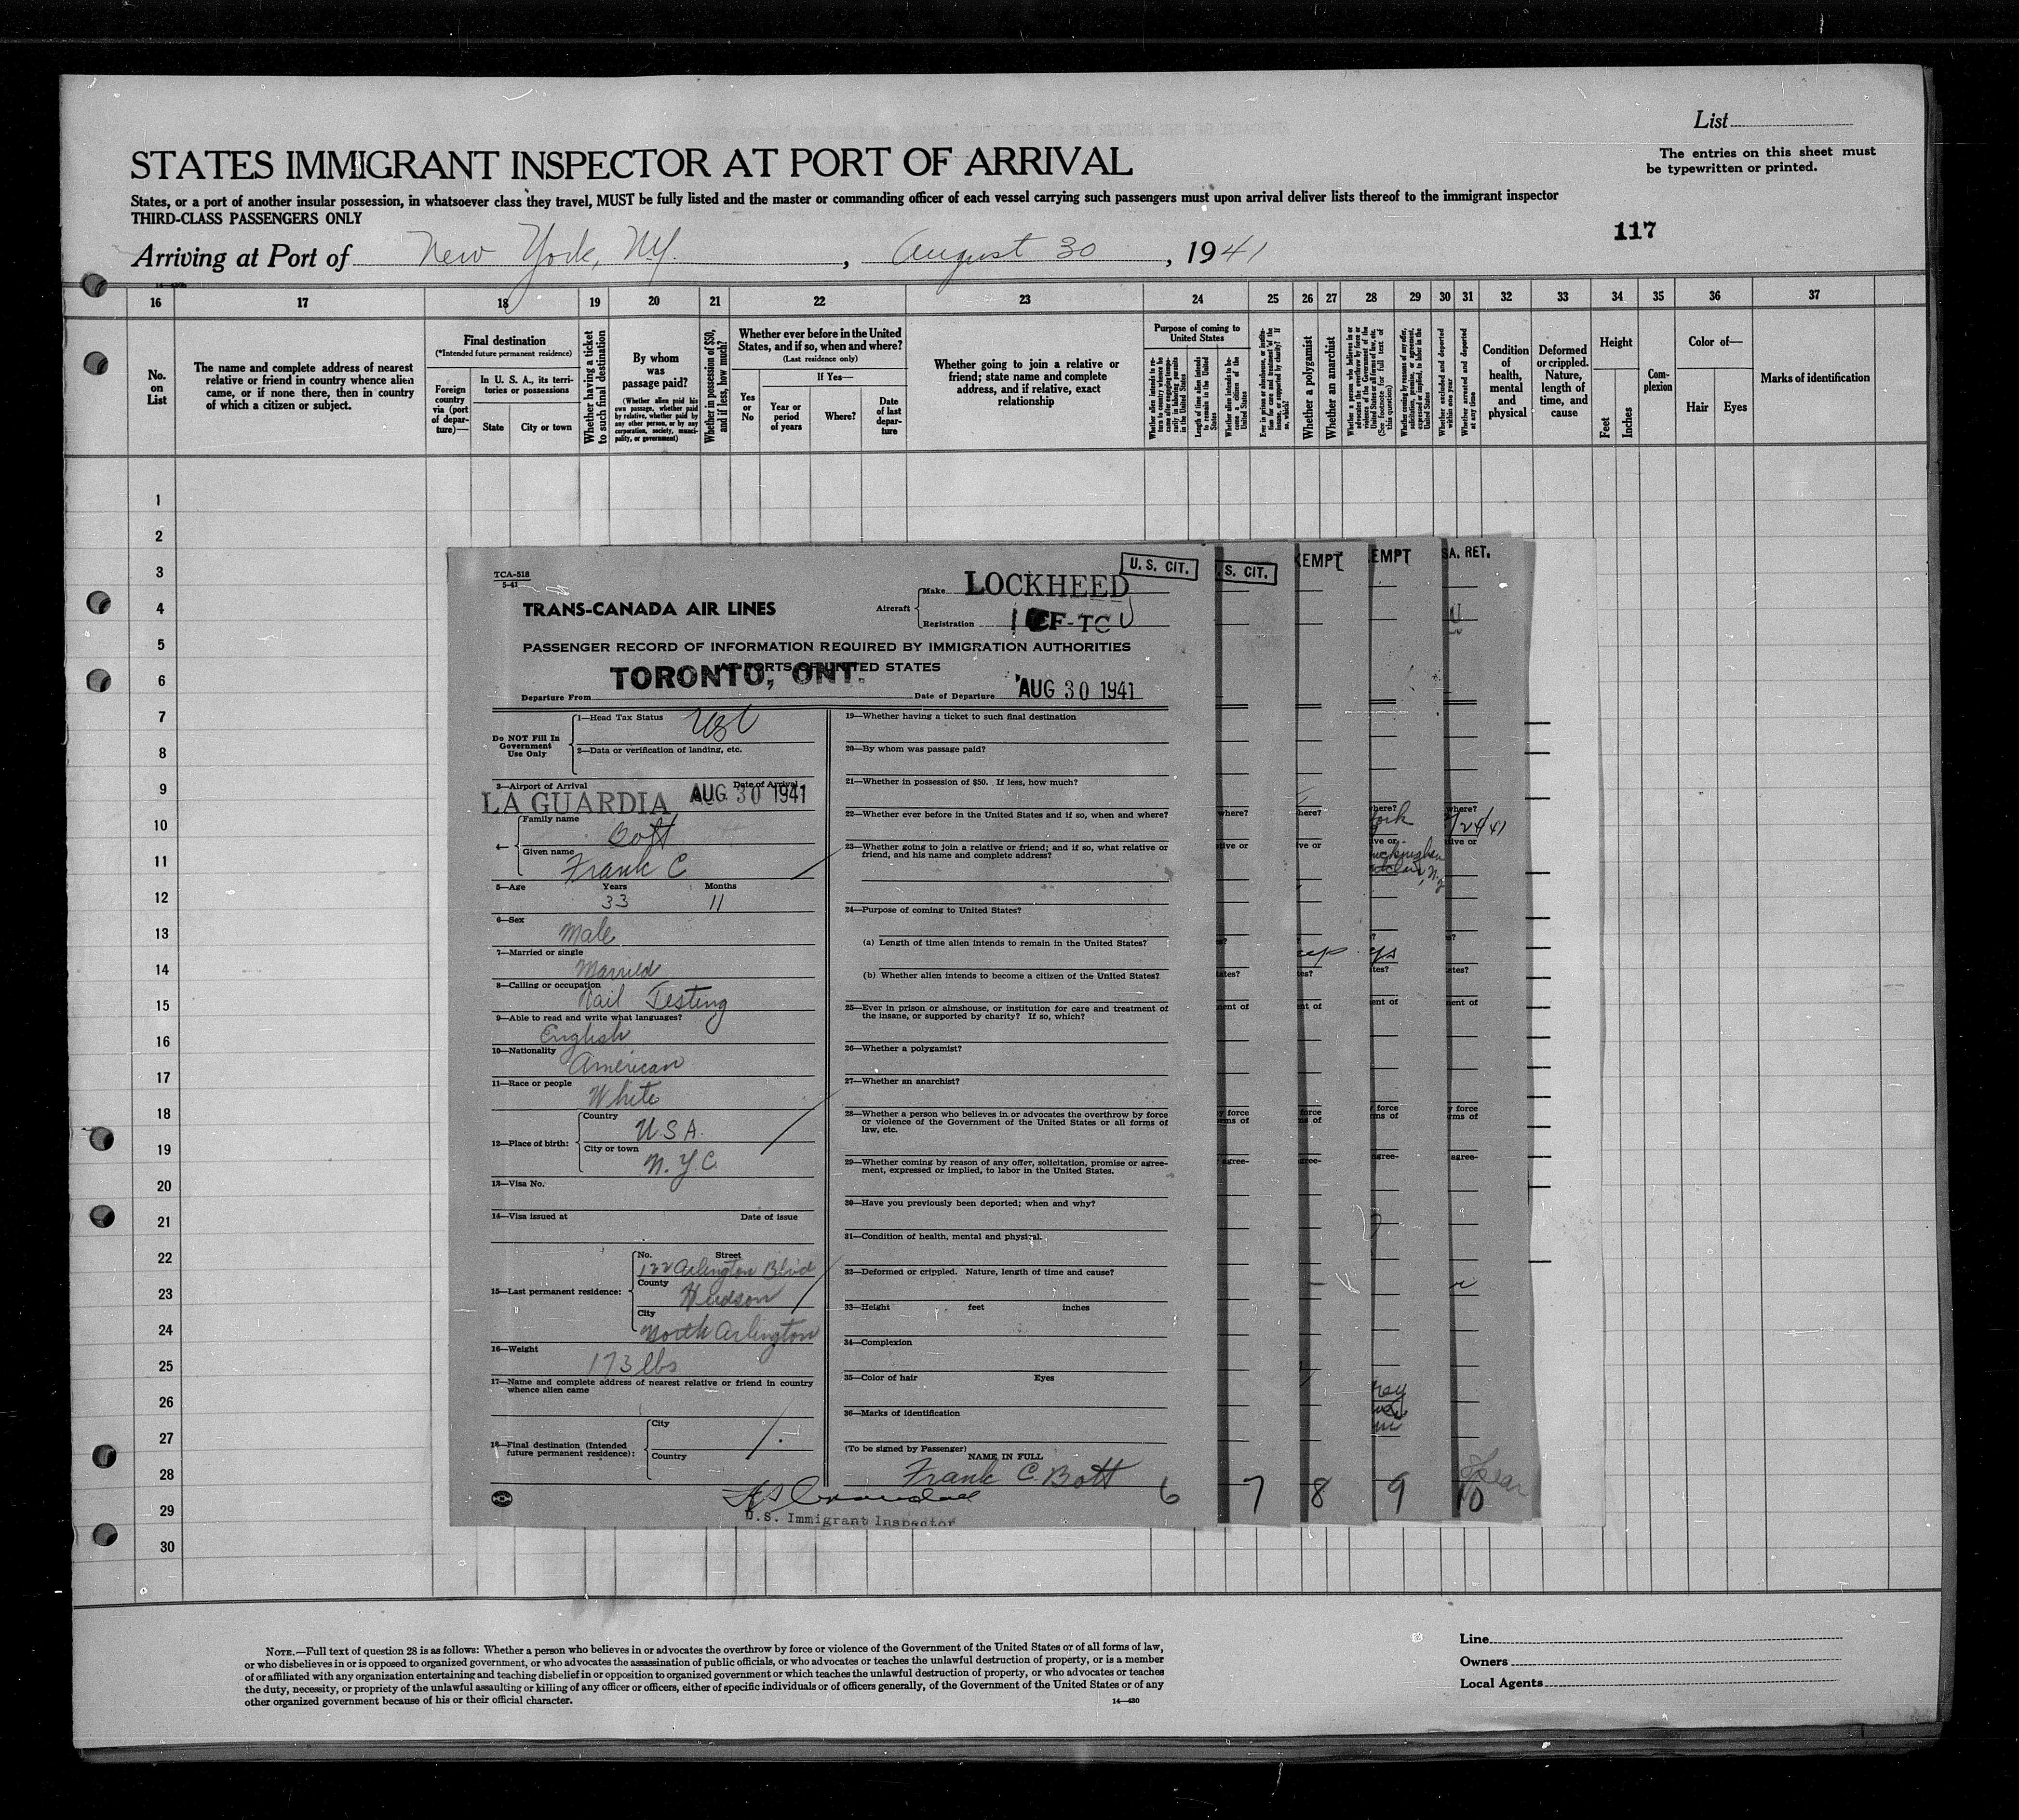 List
The entries on this sheet must
be typewritten or printed.
STATES IMMIGRANT INSPECTOR AT PORT OF ARRIVAL
States, or a port of another insular possession, in whatsoever class they travel, MUST be fully listed and the master or commanding officer of each vessel carrying such passengers must upon arrival deliver lists thereof to the immigrant inspector
THIRD-CLASS PASSENGERS ONLY
117
Arriving at Port of New York, N.Y., August 30, 1941
16 17 18 19 20 21 22 23 24 25 26 27 28 29 30 31 32 33 34 35 36 37
No. on List
The name and complete address of nearest
relative or friend in country whence alien
came, or if none there, then in country
of which a citizen or subject.
Final destination
(*Intended future permanent residence)
Foreign country via (port of departure)—
In U. S. A., its territories or possessions
State
City or town
Whether having a ticket to such final destination
By whom was passage paid?
(Whether alien paid his own passage, whether paid by relative, whether paid by any other person, or by any corporation, society, municipality, or government)
Whether in possession of $50, and if less, how much?
Whether ever before in the United States, and if so, when and where?
(Last residence only)
Yes or No
If Yes—
Year or period of years
Where?
Date of last departure
Whether going to join a relative or
friend; state name and complete
address, and if relative, exact
relationship
Purpose of coming to United States
Length of time alien intends to remain in the United States
Whether alien intends to become a citizen of the United States
Whether a polygamist
Whether an anarchist
Whether excluded and deported within one year
Whether arrested and deported at any time
Condition of health, mental and physical
Deformed or crippled. Nature, length of time, and cause
Height
Feet
Inches
Complexion
Color of—
Hair
Eyes
Marks of identification
1
2
3
4
5
6
7
8
9
10
11
12
13
14
15
16
17
18
19
20
21
22
23
24
25
26
27
28
29
30
TCA-518
5-41
TRANS-CANADA AIR LINES
Aircraft
Make LOCKHEED
Registration CF-TCU
U. S. CIT.
S. CIT.
XEMPT
EMPT
SA. RET.
PASSENGER RECORD OF INFORMATION REQUIRED BY IMMIGRATION AUTHORITIES
AT PORTS OF UNITED STATES
Departure From TORONTO, ONT. Date of Departure AUG 30 1941
Do NOT Fill In Government Use Only
1—Head Tax Status
2—Data or verification of landing, etc.
3—Airport of Arrival Date of Arrival
LA GUARDIA AUG 30 1941
4— Family name Bott
Given name Frank C
5—Age Years 33 Months 11
6—Sex Male
7—Married or single Married
8—Calling or occupation Rail Testing
9—Able to read and write what languages? English
10—Nationality American
11—Race or people White
12—Place of birth: Country U.S.A.
City or town N.Y.C.
13—Visa No.
14—Visa issued at Date of issue
15—Last permanent residence:
No. Street 122 Arlington Blvd
County Hudson
City North Arlington
16—Weight 173 lbs
17—Name and complete address of nearest relative or friend in country
whence alien came
18—Final destination (Intended
future permanent residence):
City
Country
19—Whether having a ticket to such final destination
20—By whom was passage paid?
21—Whether in possession of $50. If less, how much?
22—Whether ever before in the United States and if so, when and where?
23—Whether going to join a relative or friend; and if so, what relative or
friend, and his name and complete address?
24—Purpose of coming to United States?
(a) Length of time alien intends to remain in the United States?
(b) Whether alien intends to become a citizen of the United States?
25—Ever in prison or almshouse, or institution for care and treatment of
the insane, or supported by charity? If so, which?
26—Whether a polygamist?
27—Whether an anarchist?
28—Whether a person who believes in or advocates the overthrow by force
or violence of the Government of the United States or all forms of
law, etc.
29—Whether coming by reason of any offer, solicitation, promise or agree-
ment, expressed or implied, to labor in the United States.
30—Have you previously been deported; when and why?
31—Condition of health, mental and physical.
32—Deformed or crippled. Nature, length of time and cause?
33—Height feet inches
34—Complexion
35—Color of hair Eyes
36—Marks of identification
(To be signed by Passenger)
NAME IN FULL
Frank C. Bott
U.S. Immigrant Inspector
6 7 8 9 10
NOTE.—Full text of question 28 is as follows: Whether a person who believes in or advocates the overthrow by force or violence of the Government of the United States or of all forms of law,
or who disbelieves in or is opposed to organized government, or who advocates the assassination of public officials, or who advocates or teaches the unlawful destruction of property, or is a member
of or affiliated with any organization entertaining and teaching disbelief in or opposition to organized government or which teaches the unlawful destruction of property, or who advocates or teaches
the duty, necessity, or propriety of the unlawful assaulting or killing of any officer or officers, either of specific individuals or of officers generally, of the Government of the United States or of any
other organized government because of his or their official character.
14—430
Line
Owners
Local Agents